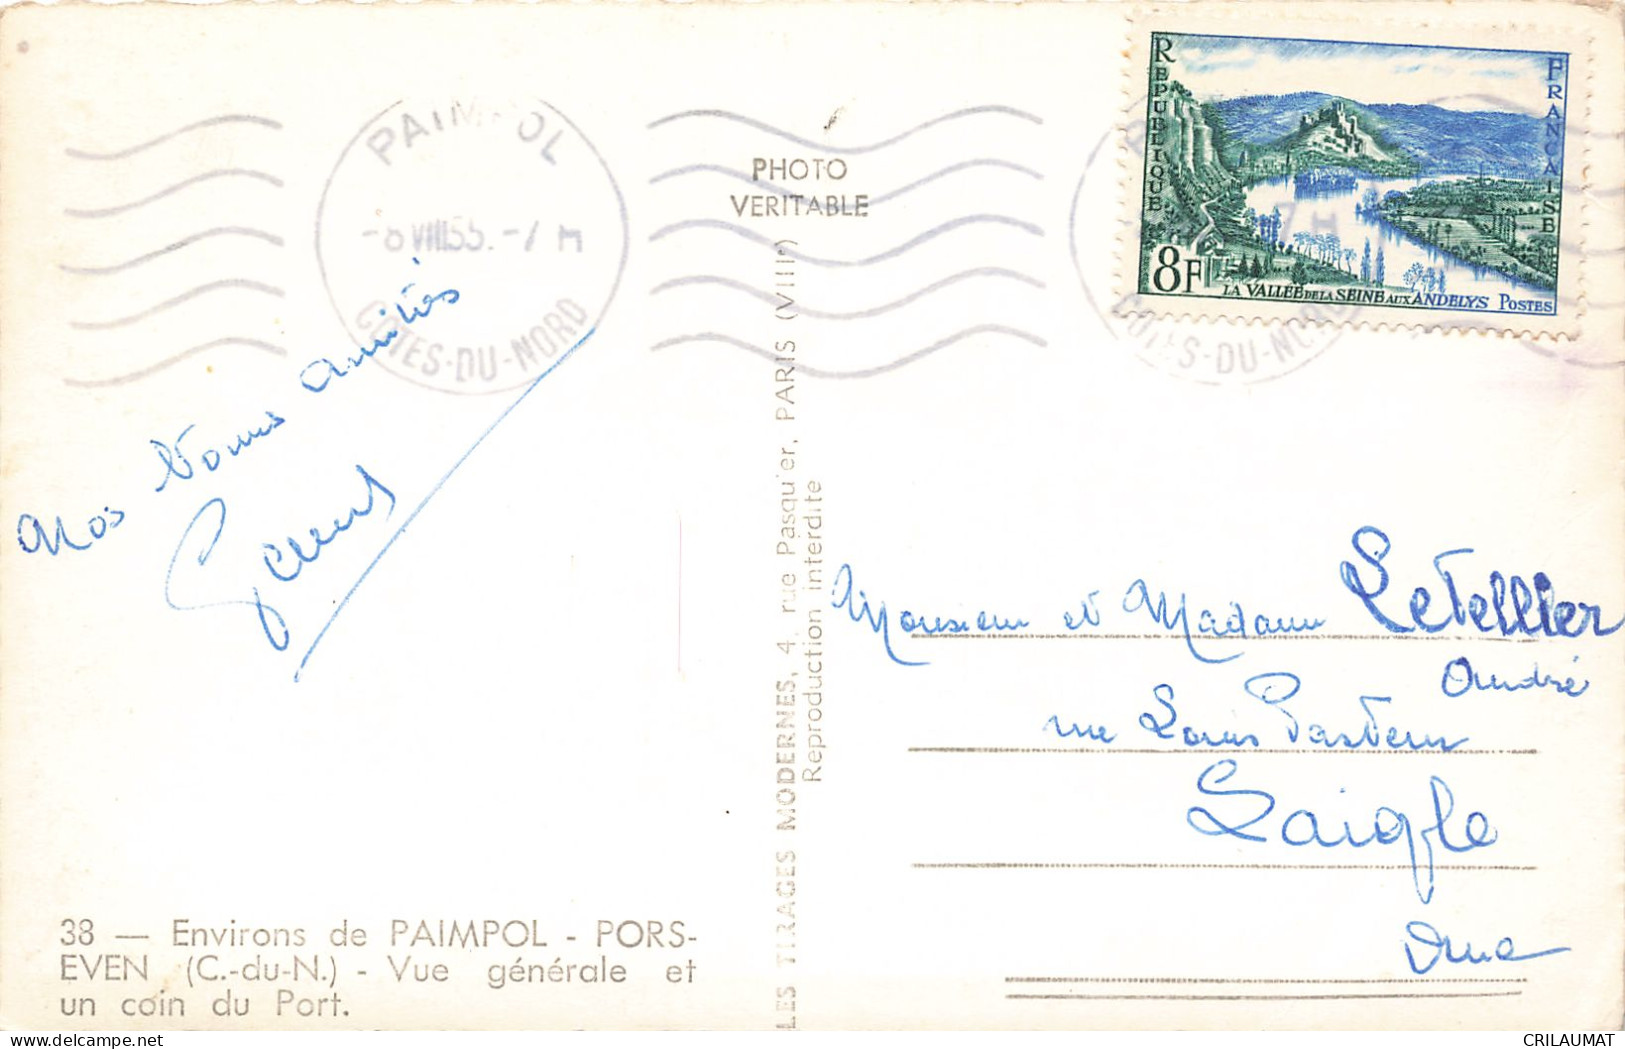 PAIMPOL
-8 VIII 55. -7 H
COTES-DU-NORD
PHOTO
VERITABLE
REPUBLIQUE FRANCAISE
8F
LA VALLEE DE LA SEINE AUX ANDELYS POSTES
7 H
COTES-DU-NORD
Nos bonnes amitiés
LES TIRAGES MODERNES, 4, rue Pasquier, PARIS (VIIIe)
Reproduction interdite
Monsieur et Madame LeTellier
André
rue Louis Pasteur
Laigle
Orne
38 — Environs de PAIMPOL - PORS-
EVEN (C.-du-N.) - Vue générale et
un coin du Port.
CRILAUMAT
delcampe.net